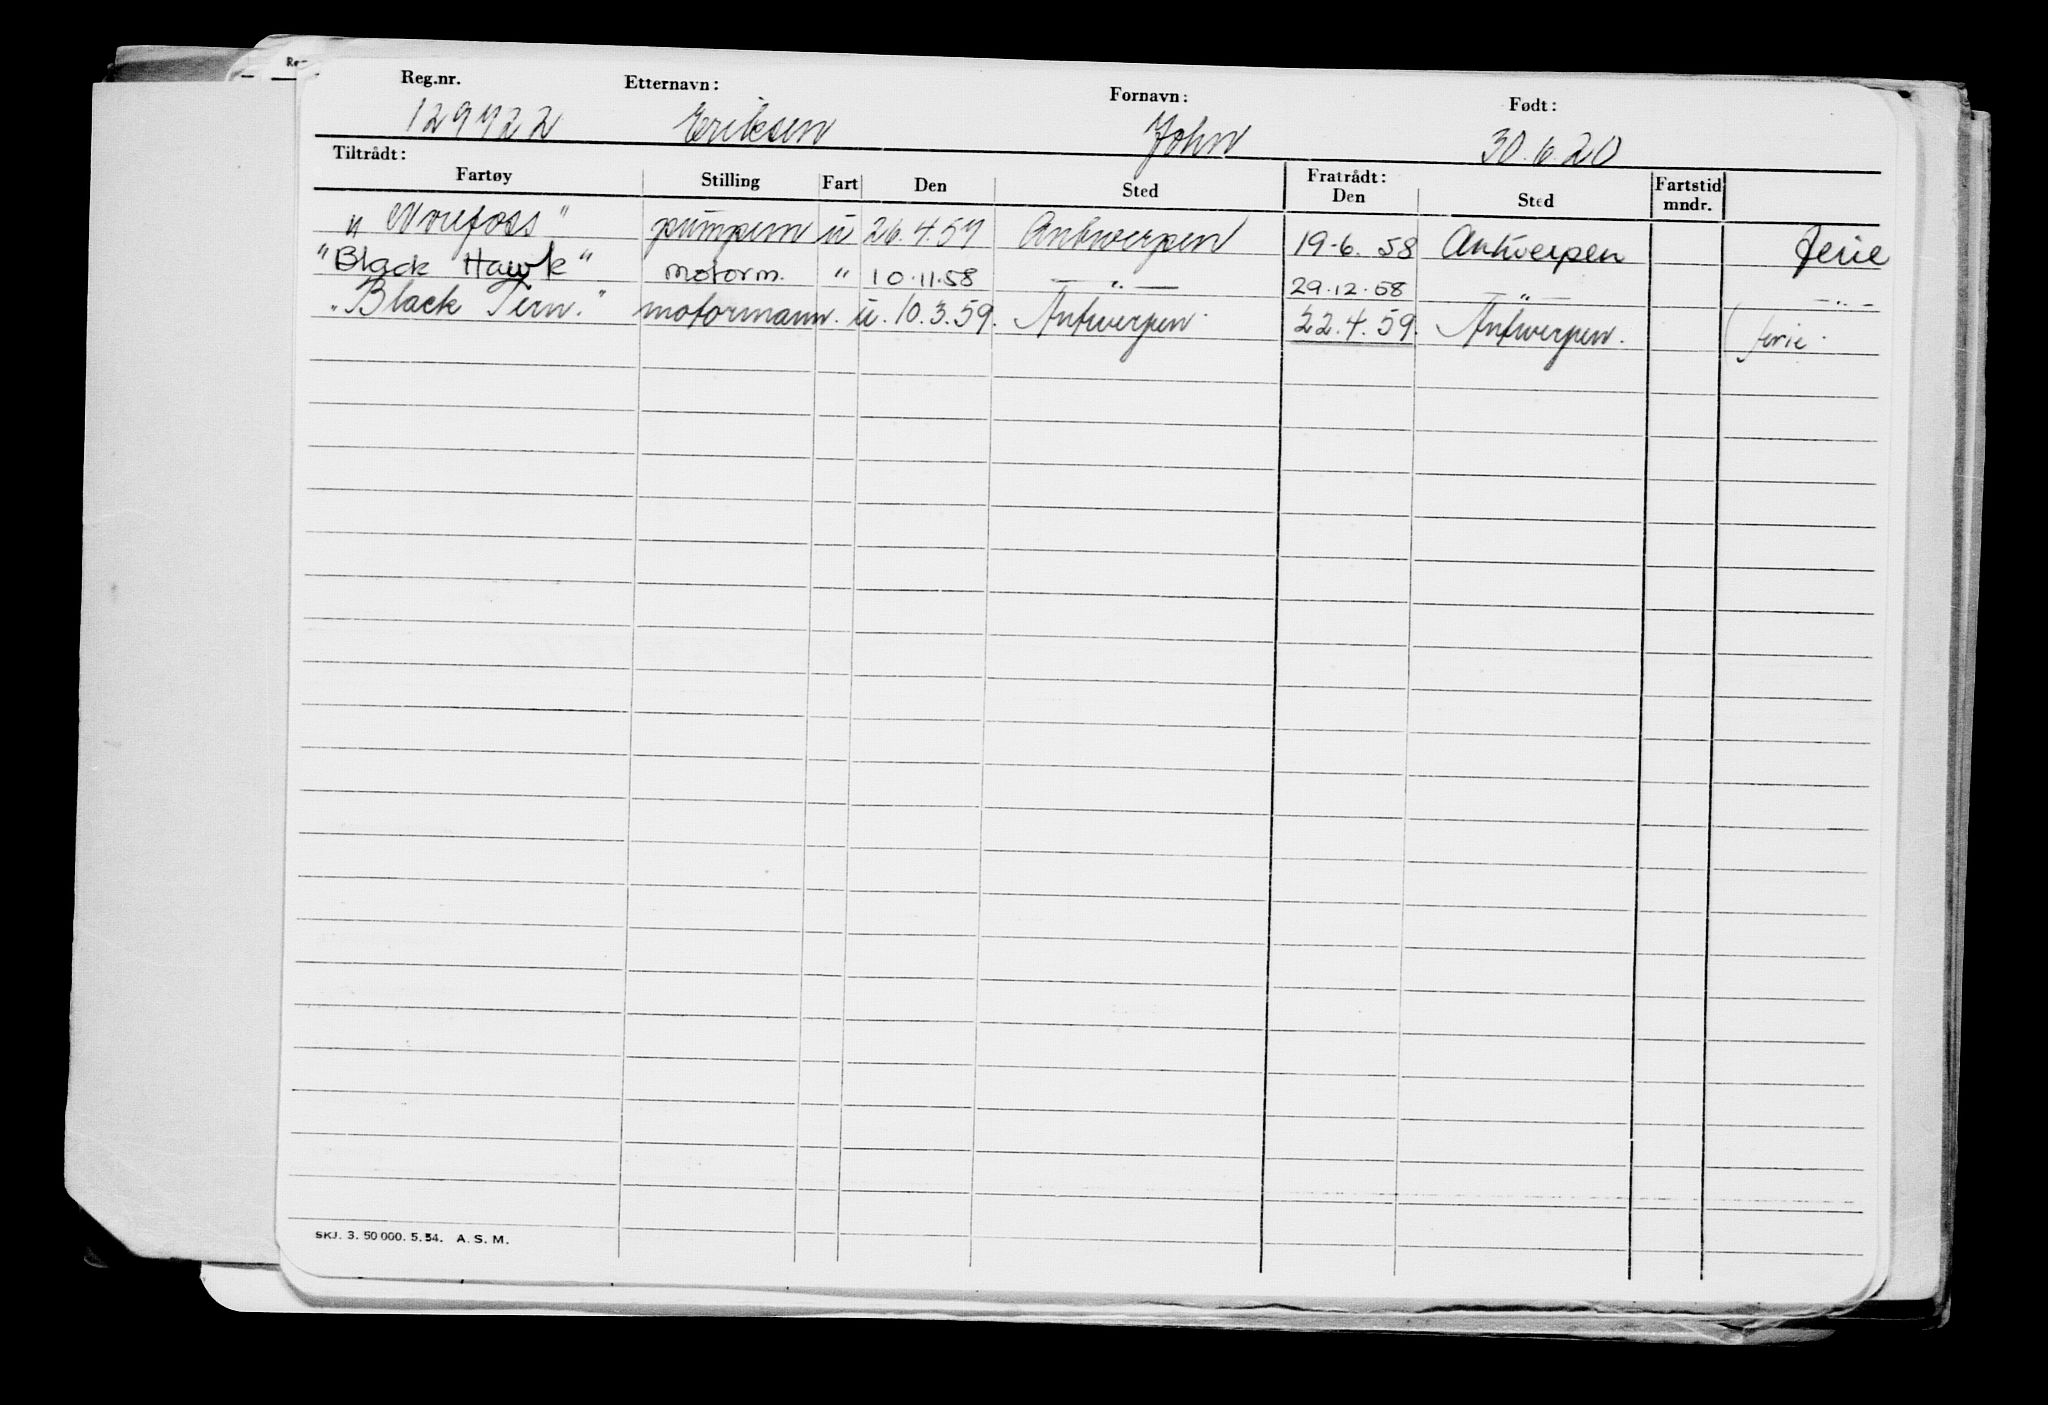 Re
Reg.nr. Etternavn: Fornavn: Født:
129722 Eriksen John 30.6.20
Tiltrådt: Fratrådt:
Fartøy Stilling Fart Den Sted Den Sted Fartstid mndr.
"Norefoss" pumpem u 26.4.57 Antwerpen 19-6.58 Antwerpen ferie
"Black Hawk" motorm. " 10.11.58 —"— 29.12.58 —"— —"—
"Black Tern." motormann. u. 10.3.59. Antwerpen. 22.4.59. Antwerpen. (ferie.
SKJ. 3. 50 000. 5. 54. A. S. M.